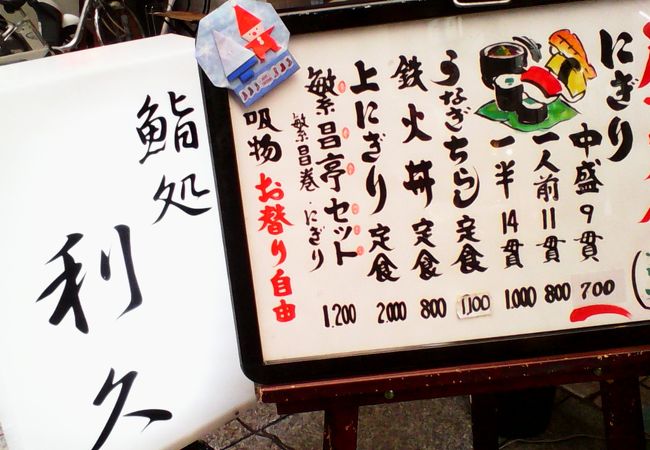 鮨処
利久
にぎり
中盛9貫 700
一人前11貫 800
一半14貫 1.000
うなぎちらし定食 1,100
鉄火丼定食 800
上にぎり定食 2.000
繁昌亭セット 1.200
繁昌巻・にぎり
吸物お替り自由